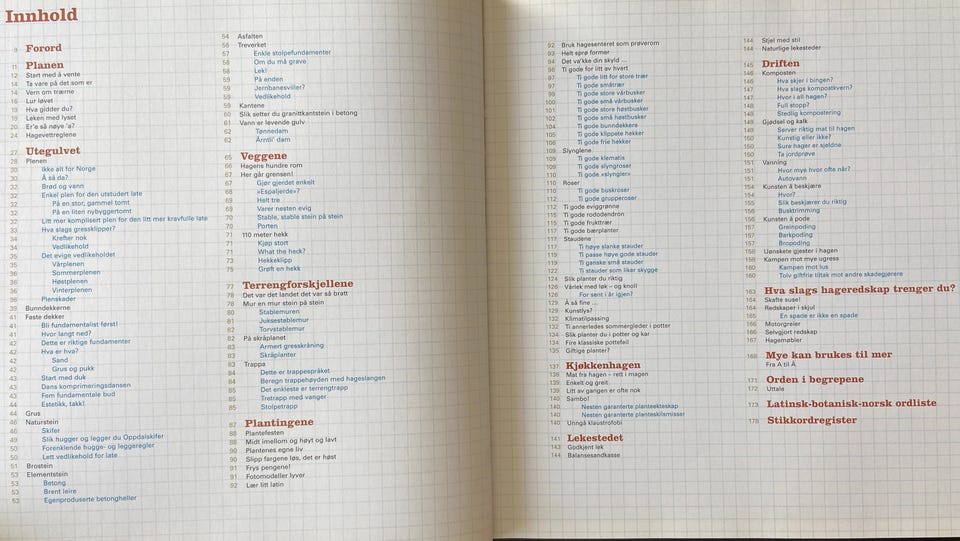 Innhold
9 Forord
11 Planen
12 Start med å vente
14 Ta vare på det som er
14 Vern om trærne
16 Lur løvet
18 Hva gidder du?
19 Leken med lyset
20 Er'e så nøye 'a?
24 Hagevettreglene
27 Utegulvet
28 Plenen
30 Ikke alt for Norge
30 Å så da?
32 Brød og vann
32 Enkel plen for den utstudert late
32 På en stor, gammel tomt
32 På en liten nybyggertomt
32 Litt mer komplisert plen for den litt mer kravfulle late
33 Hva slags gressklipper?
34 Krefter nok
34 Vedlikehold
35 Det evige vedlikeholdet
35 Vårplenen
36 Sommerplenen
36 Høstplenen
36 Vinterplenen
36 Plenskader
39 Bunndekkerne
41 Faste dekker
41 Bli fundamentalist først!
41 Hvor langt ned?
42 Dette er riktige fundamenter
42 Hva er hva?
42 Sand
42 Grus og pukk
43 Start med duk
43 Dans komprimeringsdansen
43 Fem fundamentale bud
44 Estetikk, takk!
44 Grus
46 Naturstein
46 Skifer
49 Slik hugger og legger du Oppdalskifer
50 Forenklende hugge- og leggeregler
50 Lett vedlikehold for late
51 Brostein
53 Elementstein
53 Betong
53 Brent leire
53 Egenproduserte betongheller
54 Asfalten
56 Treverket
57 Enkle stolpefundamenter
58 Om du må grave
58 Lek!
59 På enden
59 Jernbanesviller?
59 Vedlikehold
59 Kantene
60 Slik setter du granittkantstein i betong
61 Vann er levende gulv
62 Tønnedam
62 Ærntli' dam
65 Veggene
66 Hagens hundre rom
67 Her går grensen!
67 Gjør gjerdet enkelt
68 «Espaljerde»?
69 Helt tre
69 Varer nesten evig
70 Stable, stable stein på stein
70 Porten
71 110 meter hekk
71 Kjøp stort
71 What the heck?
73 Hekkeklipp
75 Grøft en hekk
77 Terrengforskjellene
78 Det var det landet det var så bratt
78 Mur en mur stein på stein
80 Stablemuren
81 Juksestablemur
82 Torvstablemur
82 På skråplanet
83 Armert gresskråning
83 Skråplanter
83 Trappa
84 Dette er trappespråket
84 Beregn trappehøyden med hageslangen
85 Det enkleste er terrengtrapp
85 Tretrapp med vanger
85 Stolpetrapp
87 Plantingene
88 Plantefesten
88 Midt imellom og høyt og lavt
90 Plantenes egne liv
90 Slipp fargene løs, det er høst
91 Frys pengene!
91 Fotomodeller lyver
92 Lær litt latin
92 Bruk hagesenteret som prøverom
93 Helt sprø former
94 Det va'kke din skyld ...
96 Ti gode for litt av hvert
97 Ti gode litt for store trær
97 Ti gode småtrær
99 Ti gode store vårbusker
100 Ti gode små vårbusker
101 Ti gode store høstbusker
102 Ti gode små høstbusker
104 Ti gode bunndekkere
106 Ti gode klippete hekker
106 Ti gode frie hekker
109 Slyngene
109 Ti gode klematis
109 Ti gode slyngroser
110 Ti gode «slyngler»
110 Roser
110 Ti gode buskroser
112 Ti gode grupperoser
112 Ti gode eviggrønne
115 Ti gode rododendron
115 Ti gode frukttrær
117 Ti gode bærplanter
117 Staudene
117 Ti høye slanke stauder
119 Ti passe høye gode stauder
121 Ti ganske små stauder
122 Ti stauder som liker skygge
124 Slik planter du riktig
126 Vårlek med løk – og knoll
126 For sent i år igjen?
129 Å så fine ...
129 Kunstlys?
132 Klimatilpassing
132 Ti annerledes sommergleder i potter
134 Slik planter du i potter og kar
134 Fire klassiske pottefeil
135 Giftige planter?
137 Kjøkkenhagen
138 Mat fra hagen – rett i magen
139 Enkelt og greit
139 Litt av gangen er ofte nok
140 Sambo!
140 Nesten garanterte planteekteskap
140 Nesten garanterte planteskilsmisser
140 Unngå klaustrofobi
141 Lekestedet
143 Godkjent lek
144 Balansesandkasse
144 Stjel med stil
144 Naturlige lekesteder
145 Driften
146 Komposten
146 Hva skjer i bingen?
147 Hva slags kompostkvern?
147 Hvor i all hagen?
148 Full stopp?
148 Stedlig kompostering
149 Gjødsel og kalk
149 Server riktig mat til hagen
150 Kunstig eller ikke?
150 Sure hager er sjeldne
150 Ta jordprøve
151 Vanning
151 Hvor mye hvor ofte når?
151 Autovann
154 Kunsten å beskjære
154 Hvor?
155 Slik beskjærer du riktig
156 Busktrimming
156 Kunsten å pode
157 Greinpoding
157 Barkpoding
157 Bropoding
158 Uønskete gjester i hagen
158 Kampen mot mye ugress
160 Kampen mot lus
160 Tolv giftfrie tiltak mot andre skadegjørere
163 Hva slags hageredskap trenger du?
164 Skafte suse!
164 Redskaper i skjul
165 En spade er ikke en spade
166 Motorgreier
166 Selvgjort redskap
167 Hagemøbler
168 Mye kan brukes til mer
Fra A til Å
171 Orden i begrepene
172 Uttale
173 Latinsk-botanisk-norsk ordliste
178 Stikkordregister